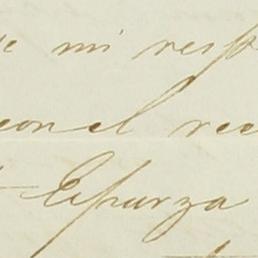 mi resp
con el rec
Esparza